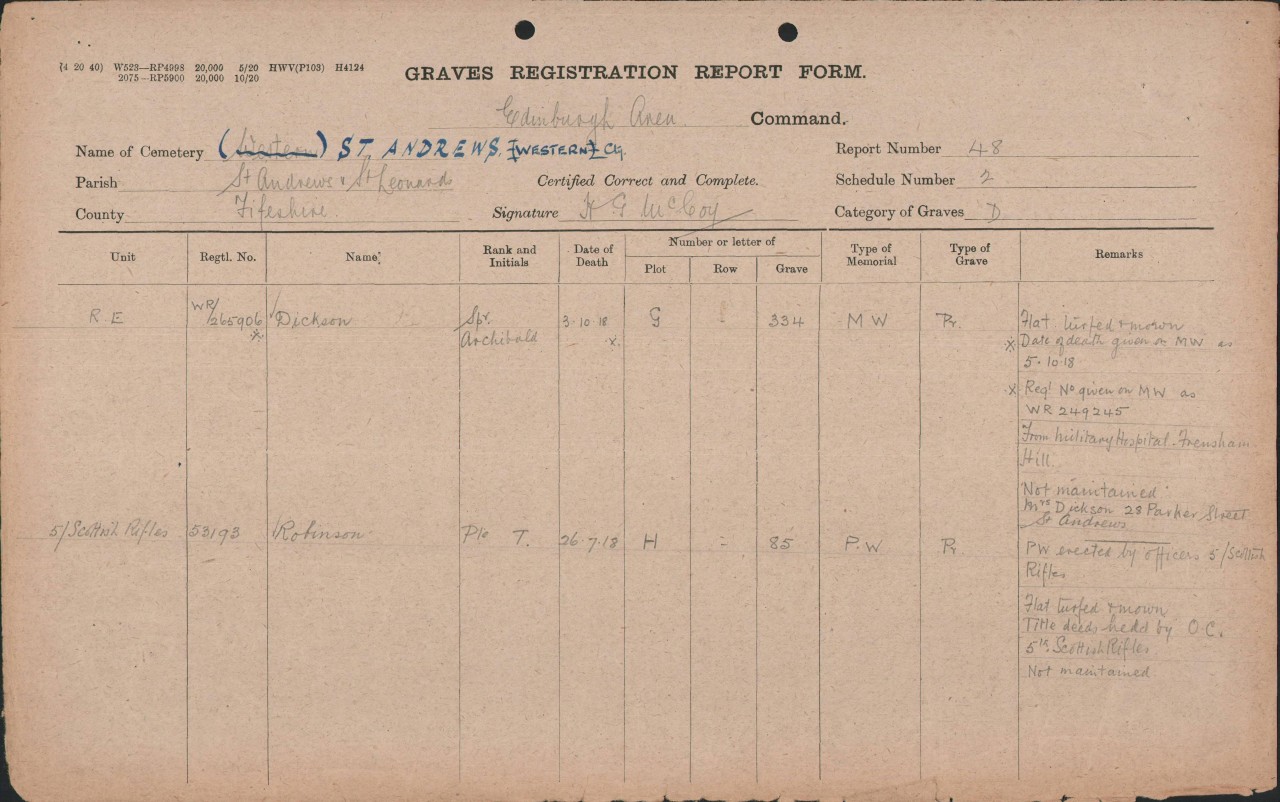 (4 20 40) W523—RP4998 20,000 5/20 HWV(P103) H4124
2075—RP5900 20,000 10/20
GRAVES REGISTRATION REPORT FORM.
Edinburgh Area Command.
Name of Cemetery (Western) ST. ANDREWS. [WESTERN] CY.
Report Number 48
Parish St Andrews & St Leonards
Certified Correct and Complete.
Schedule Number 2
County Fifeshire.
Signature H G McCoy
Category of Graves D
Unit Regtl. No. Name. Rank and Initials Date of Death Number or letter of Plot Row Grave Type of Memorial Type of Grave Remarks
R.E WR/265906 x Dickson Spr. Archibald 3.10.18 x. G - 334 M W Pr. Flat turfed & mown
x Date of death given on MW as
5.10.18
x Regl No given on MW as
WR 249245
From Military Hospital. Frensham
Hill.
Not maintained
Mrs Dickson 28 Parker Street
St Andrews
5/Scottish Rifles 53193 Robinson Pte T. 26.7.18 H - 85 P.W Pr PW erected by officers 5/Scottish
Rifles
Flat turfed & mown
Title deeds held by O.C.
5th Scottish Rifles
Not maintained